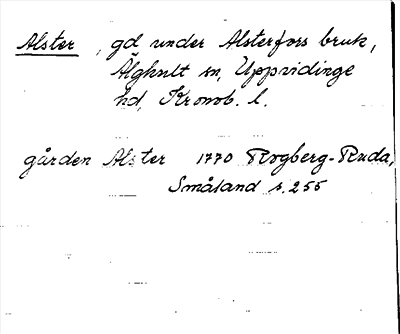 Alster, gd under Alsterfors bruk,
Älghult sn, Uppvidinge
hd, Kronob. l.
gården Alster 1770 Rogberg-Ruda,
Småland s. 255